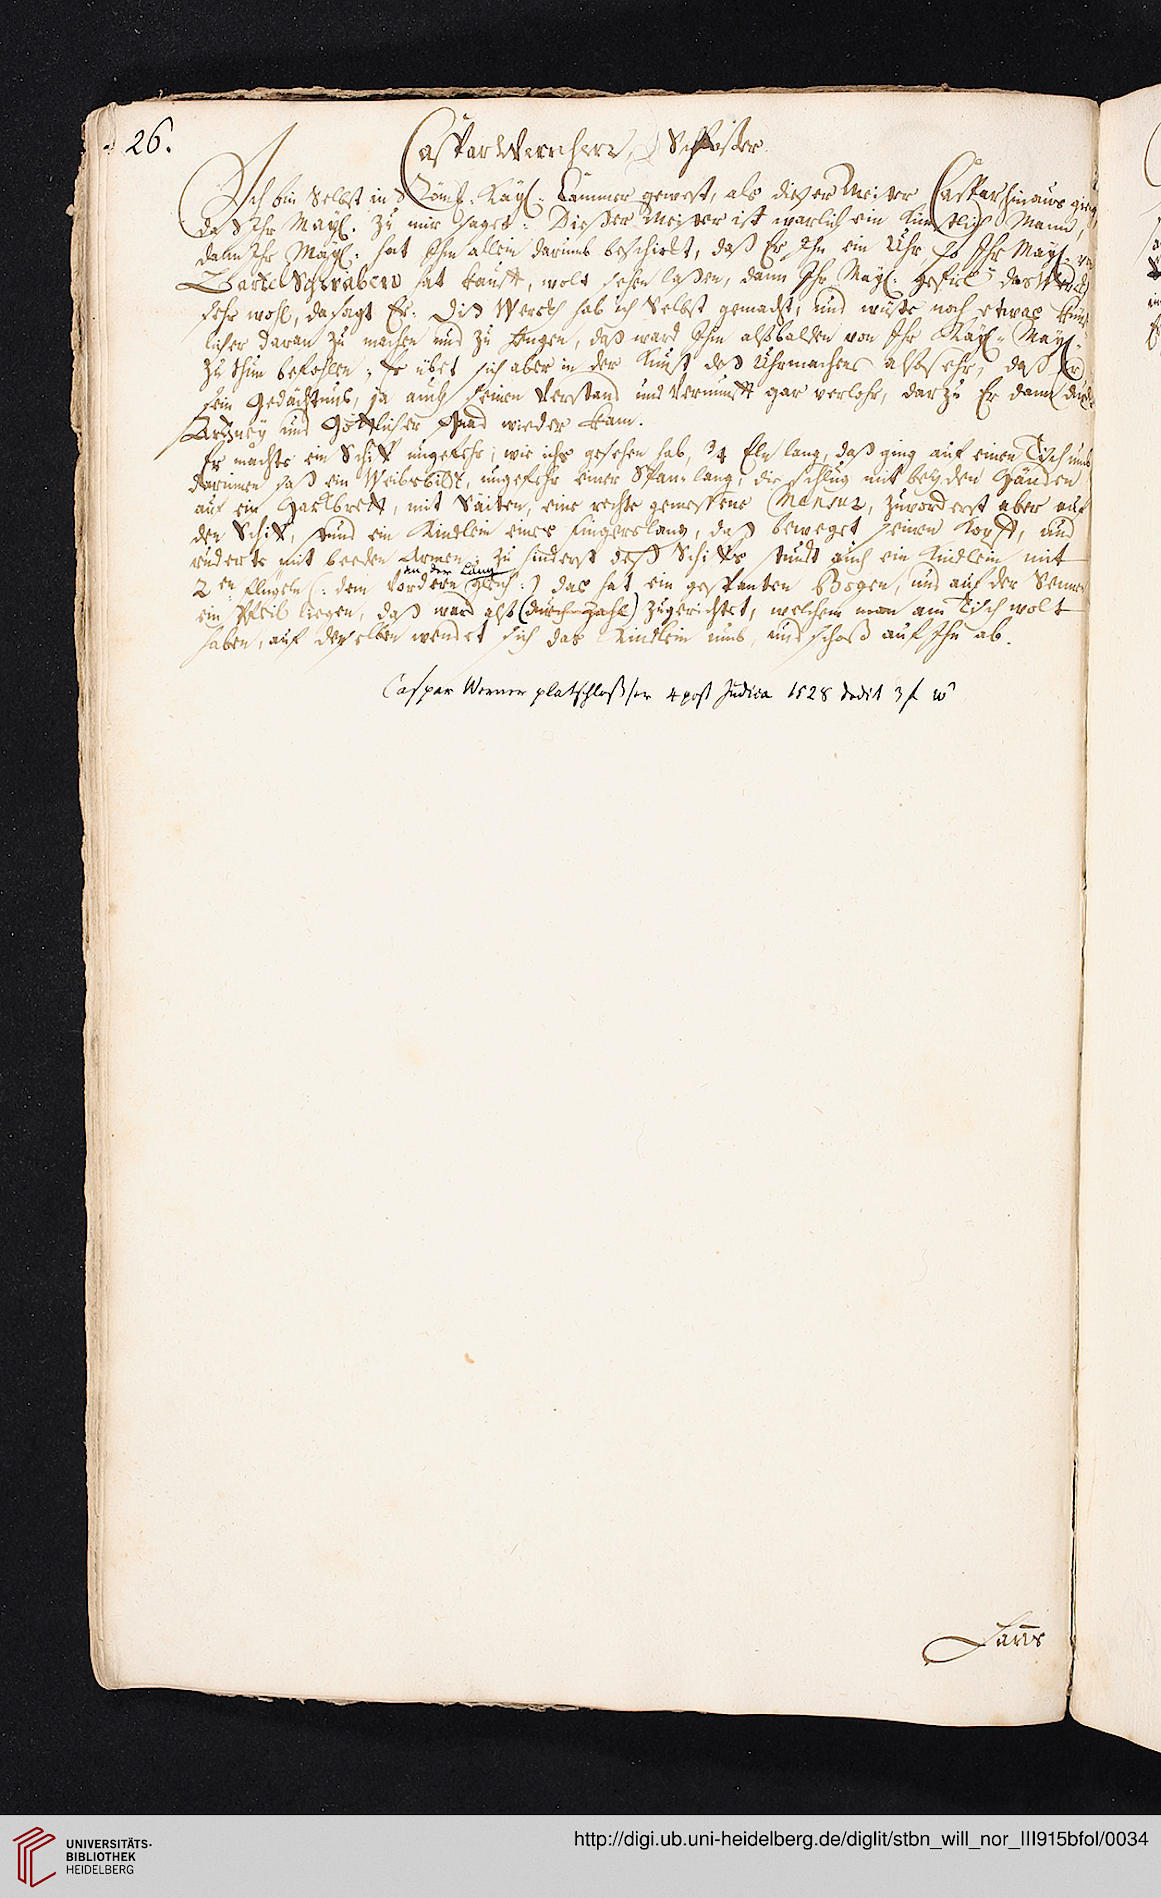 26.
Caspar Wernherr, Schloßer
Ich bin Selbst in Röm. Kayß. Cammer gewest, als dießer Meister Caspar hinaus ging,
da Ihr Mayß. zu mir saget: Dießer Meister ist warlich ein Künstlich Mann,
dann Ihr Mayß. hat Ihn allein darumb beschickt, daß Er Ihn ein Uhr so Ihr Mayt. von
Bartel Schwaben hat kaufft, wolt sehen laßen, dann Ihr Mayß. gefiel das Werck
sehr wohl, da sagt Er: Diß Werck hab ich Selbst gemacht, und wüste noch etwas künst
licher daran zu machen und zu bringen, daß ward Ihm alßbalden von Ihr Kayß. Mayß.
zu thun befohlen, Er übet sich aber in der Kunst deß Uhrmachens also sehr, daß Er
sein Gedächtnus, ja auch seinen Verstand und Vernunfft gar verlohr, darzu Er dann durch
Artzney und Göttlicher Gnad wieder kam.
Er machte ein Schiff ungefehr, wie ichs gesehen hab, 3/4 Eln lang, daß ging auf einen Tisch umb
darinnen saß ein Weibsbildt, ungefehr einer Span lang, die schlug mit beyden Händen
auf ein Hackbrett, mit Saiten, eine rechte gemeßene Mensur, zuvorderst aber auf
den Schiff, stund ein Kindlein eines Fingerslang, daß beweget seinen Kopff, und
ruderte mit beeden Armen, zu hinderst deß Schiffs stundt auch ein Kindlein mit
an der Läng
2en Flügeln (: dem Vordern gleich :) das hat ein gespanten Bogen, und auf der Sennen
ein Pfeil liegen, daß ward alß (durch Zahl) zugerichtet, welchem man am Tisch wolt
haben, auf denselben wendet sich das Kindlein umb, und schoß auf Ihn ab.
Caspar Werner platschlosser 4 post Judica 1528 dedit 3 f w
Hanns
UNIVERSITÄTS-
BIBLIOTHEK
HEIDELBERG
http://digi.ub.uni-heidelberg.de/diglit/stbn_will_nor_III915bfol/0034